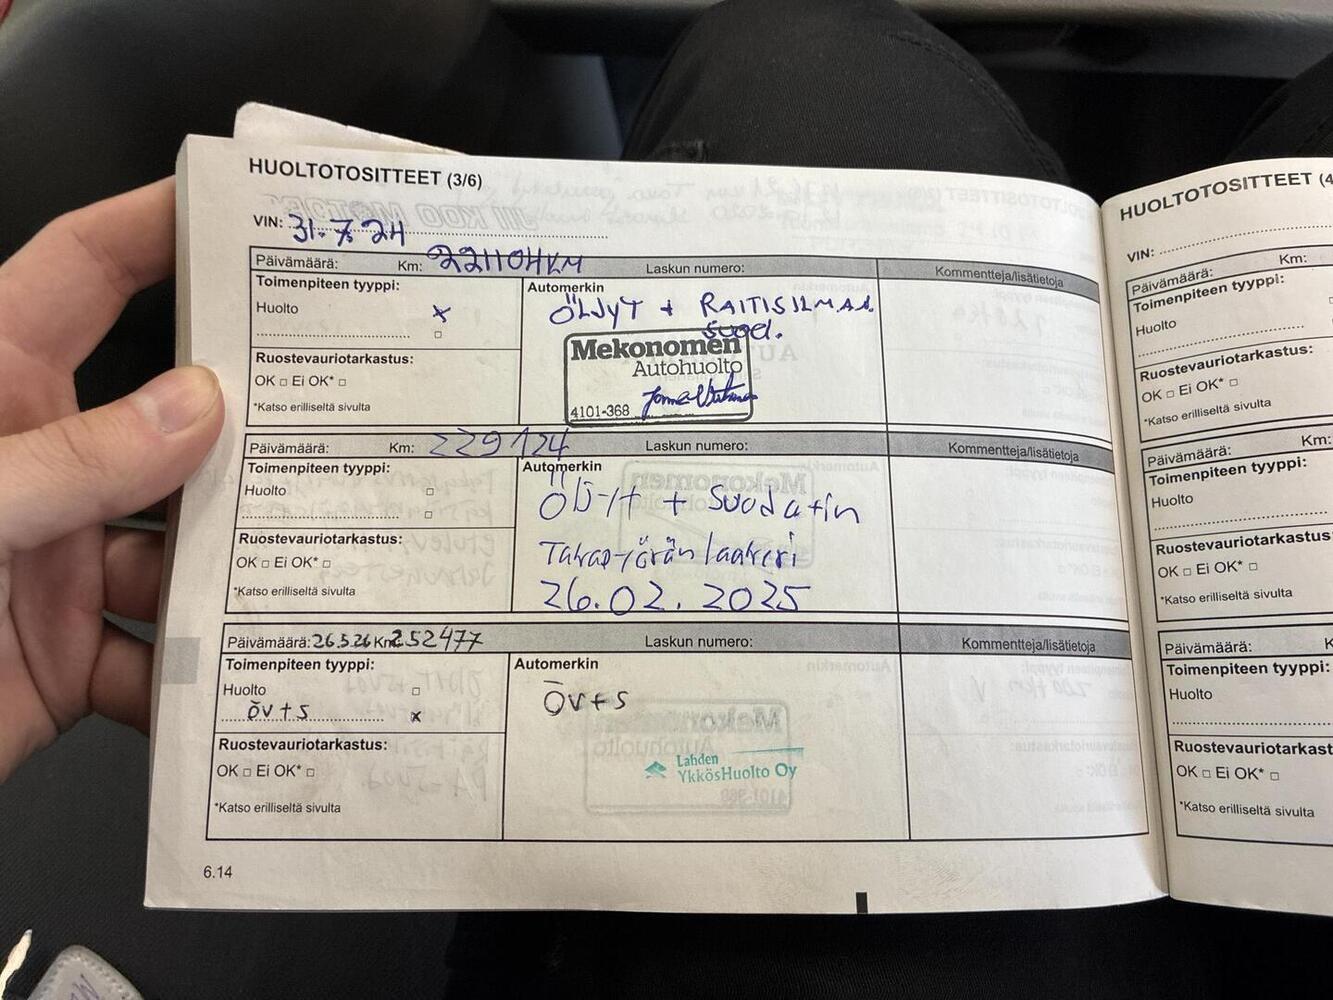 HUOLTOTOSITTEET (3/6)
VIN: 31.7.24
Päivämäärä: Km: 221104KM Laskun numero: Kommentteja/lisätietoja
Toimenpiteen tyyppi: Automerkin
Huolto x ÖLJYT + RAITISILMAA
suod.
Mekonomen
Autohuolto
4101-368
Ruostevauriotarkastus:
OK □ Ei OK* □
*Katso erilliseltä sivulta
Päivämäärä: Km: 229124 Laskun numero: Kommentteja/lisätietoja
Toimenpiteen tyyppi: Automerkin
Huolto □ Öljyt + Suodatin
Ruostevauriotarkastus: Takapyörän laakeri
OK □ Ei OK* □ 26.02.2025
*Katso erilliseltä sivulta
Päivämäärä: 26.5.26 Km: 252477 Laskun numero: Kommentteja/lisätietoja
Toimenpiteen tyyppi: Automerkin
Huolto □ öv+s
öv+s x
Ruostevauriotarkastus:
OK □ Ei OK* □
*Katso erilliseltä sivulta
Lahden
YkkösHuolto Oy
6.14
HUOLTOTOSITTEET (4
VIN:
Päivämäärä: Km:
Toimenpiteen tyyppi:
Huolto
Ruostevauriotarkastus:
OK □ Ei OK* □
*Katso erilliseltä sivulta
Päivämäärä: Km:
Toimenpiteen tyyppi:
Huolto
Ruostevauriotarkastus
OK □ Ei OK* □
*Katso erilliseltä sivulta
Päivämäärä: K
Toimenpiteen tyyppi:
Huolto
Ruostevauriotarkast
OK □ Ei OK* □
*Katso erilliseltä sivulta